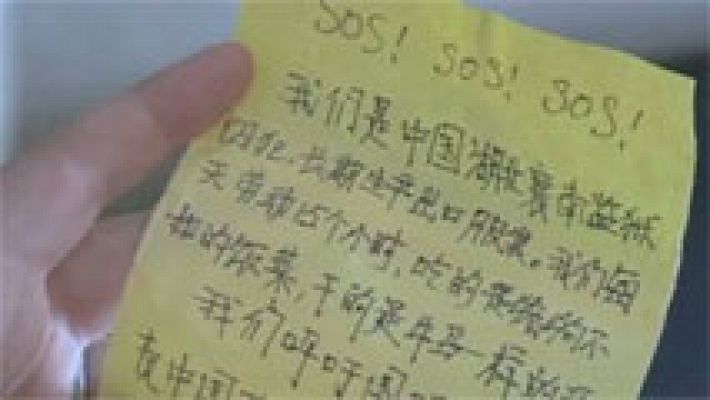 SOS! SOS! SOS!
我们是中国湖北襄南监狱
囚犯,长期生产出口服装。我们每
天劳动15个小时,吃的是猪狗不
如的饭菜,干的是牛马一样的
我们呼吁国
在中国